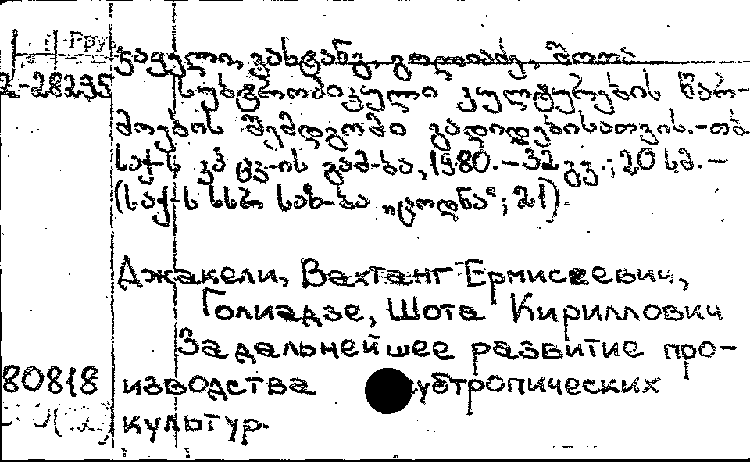 Гру
ჯაყელი, ვახტანგ, გოლიაძე, შოთა
2-28295
სუბტროპიკული კულტურების წარ-
მოების შემდგომი გადიდებისათვის.-თბ.
საქ-ს კპ ცკ-ის გამ-ბა, 1980.-32 გვ.; 20 სმ.-
(საქ-ს სსრ საზ-ბა „ცოდნა"; 21)
Джакели, Вахтанг Ермисеевич,
Голиадзе, Шота Кириллович
За дальнейшее развитие про-
80818
изводства субтропических
культур.